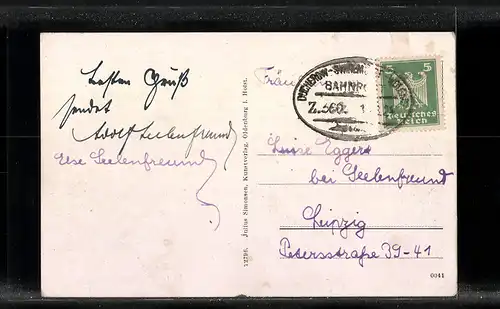 besten Gruß
sendet
Adolf Seelenfreund
Else Seelenfreund
Julius Simonsen, Kunstverlag, Oldenburg i. Holst.
12796.
DUCHEROW-SWINEMÜNDE
BAHNPOST
Z.
5 5
Deutsches
Reich
Fräu
Luise Eggers
bei Seelenfreund
Leipzig
Petersstraße 39-41
0041